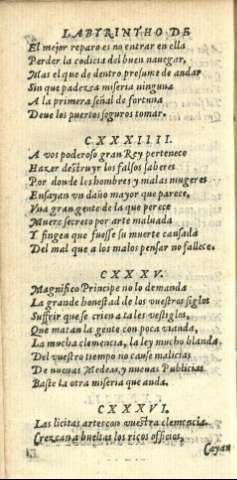 LABYRINTHO DE
El mejor reparo es no entrar en ella
Perder la codicia del buen nauegar,
Mas el que de dentro presume de andar
Sin que padezca miseria ninguna
A la primera señal de fortuna
Deue los puertos seguros tomar.
CXXXIIII.
A vos poderoso gran Rey pertenece
Hazer destruyr los falsos saberes
Por donde los hombres y malas mugeres
Ensayan vn daño mayor que parece,
Vna gran gente de la que perece
Muere secreto por arte maluada
Y fingen que fuesse su muerte causada
Del mal que a los malos pensar no fallece.
CXXXV.
Magnifico Principe no lo demanda
La grande honestad de los vuestros siglos
Suffrir que se crien atales vestiglos,
Que matan la gente con poca vianda,
La mucha clemencia, la ley mucho blanda
Del vuestro tiempo no cause malicias
De nueuas Medeas, y nueuas Publicias
Baste la otra miseria que anda.
CXXXVI.
Las licitas artes con vuestra clemencia
Crezcan a bueltas los ricos officios,
Cayan